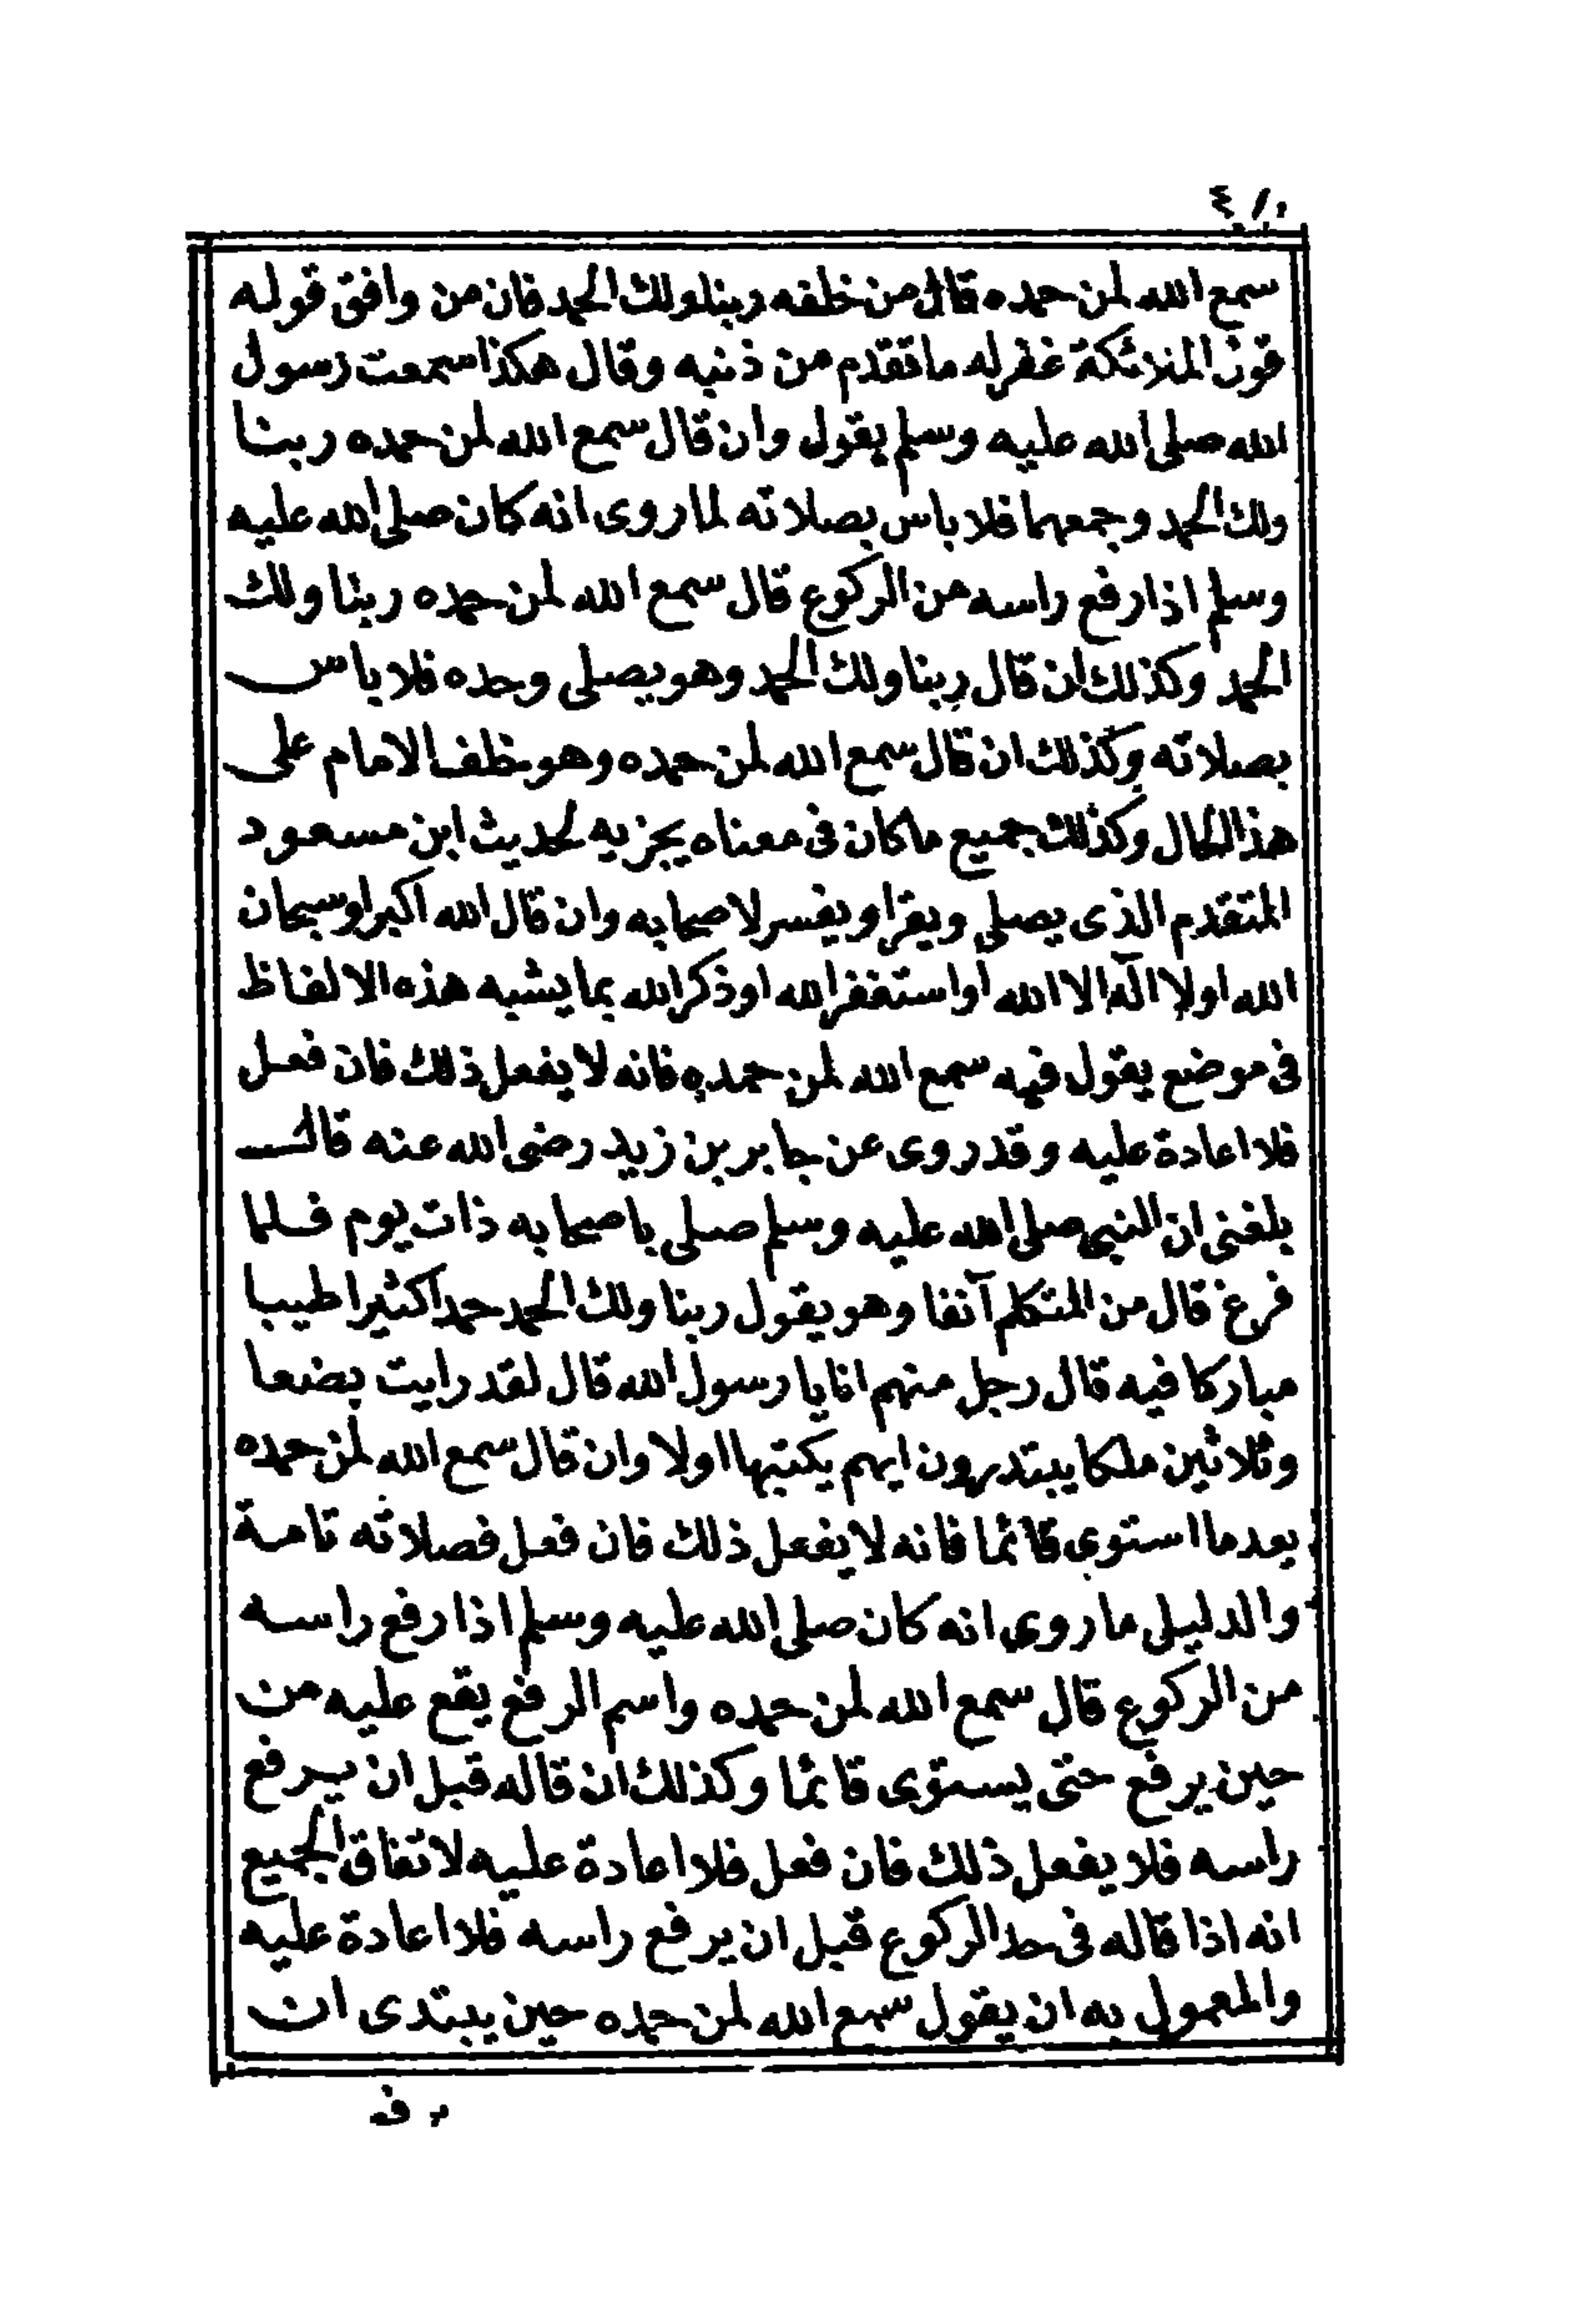 سمع الله لمن حمده قال من خلفه ربنا ولك الحمد فان من وافق قوله
قول الملائكة غفر له ما تقدم من ذنبه وقال هكذا سمعت رسول
الله صلى الله عليه وسلم يقول وان قال سمع الله لمن حمده ربنا
ولك الحمد وجمعهما فلا باس بصلاته لما روى انه كان صلى الله عليه
وسلم اذا رفع راسه من الركوع قال سمع الله لمن حمده ربنا ولك
الحمد وكذلك ان قال ربنا ولك الحمد وهو يصلى وحده فلا باس
بصلاته وكذلك ان قال سمع الله لمن حمده وهو خلف الامام على
هذا الحال وكذلك جميع ما كان فى معناه يجزيه لحديث ابن مسعود
المتقدم الذى يصلى ويقرا ويفسر لاصحابه وان قال الله اكبر او سبحان
الله او لا اله الا الله او استغفر الله او ذكر الله بما يشبه هذه الالفاظ
فى موضع يقول فيه سمع الله لمن حمده فانه لا يفعل ذلك فان فعل
فلا اعادة عليه وقد روى عن جابر بن زيد رضى الله عنه قال
بلغنى ان النبي صلى الله عليه وسلم صلى باصحابه ذات يوم فلما
فرغ قال من المتكلم آنفا وهو يقول ربنا ولك الحمد حمدا كثيرا طيبا
مباركا فيه قال رجل منهم انا يا رسول الله قال لقد رايت بضعا
وثلاثين ملكا يبتدرون ايهم يكتبها اولا وان قال سمع الله لمن حمده
بعد ما استوى قائما فانه لا يفعل ذلك فان فعل فصلاته تامة
والدليل ما روى انه كان صلى الله عليه وسلم اذا رفع راسه
من الركوع قال سمع الله لمن حمده واسم الرفع يقع عليه من
حين يرفع حتى يستوى قائما وكذلك ان قاله قبل ان يرفع
راسه فلا يفعل ذلك فان فعل فلا اعادة عليه لاتفاق الجميع
انه اذا قاله فى حد الركوع قبل ان يرفع راسه فلا اعادة عليه
والمعمول به ان يقول سمع الله لمن حمده حين يبتدى ان